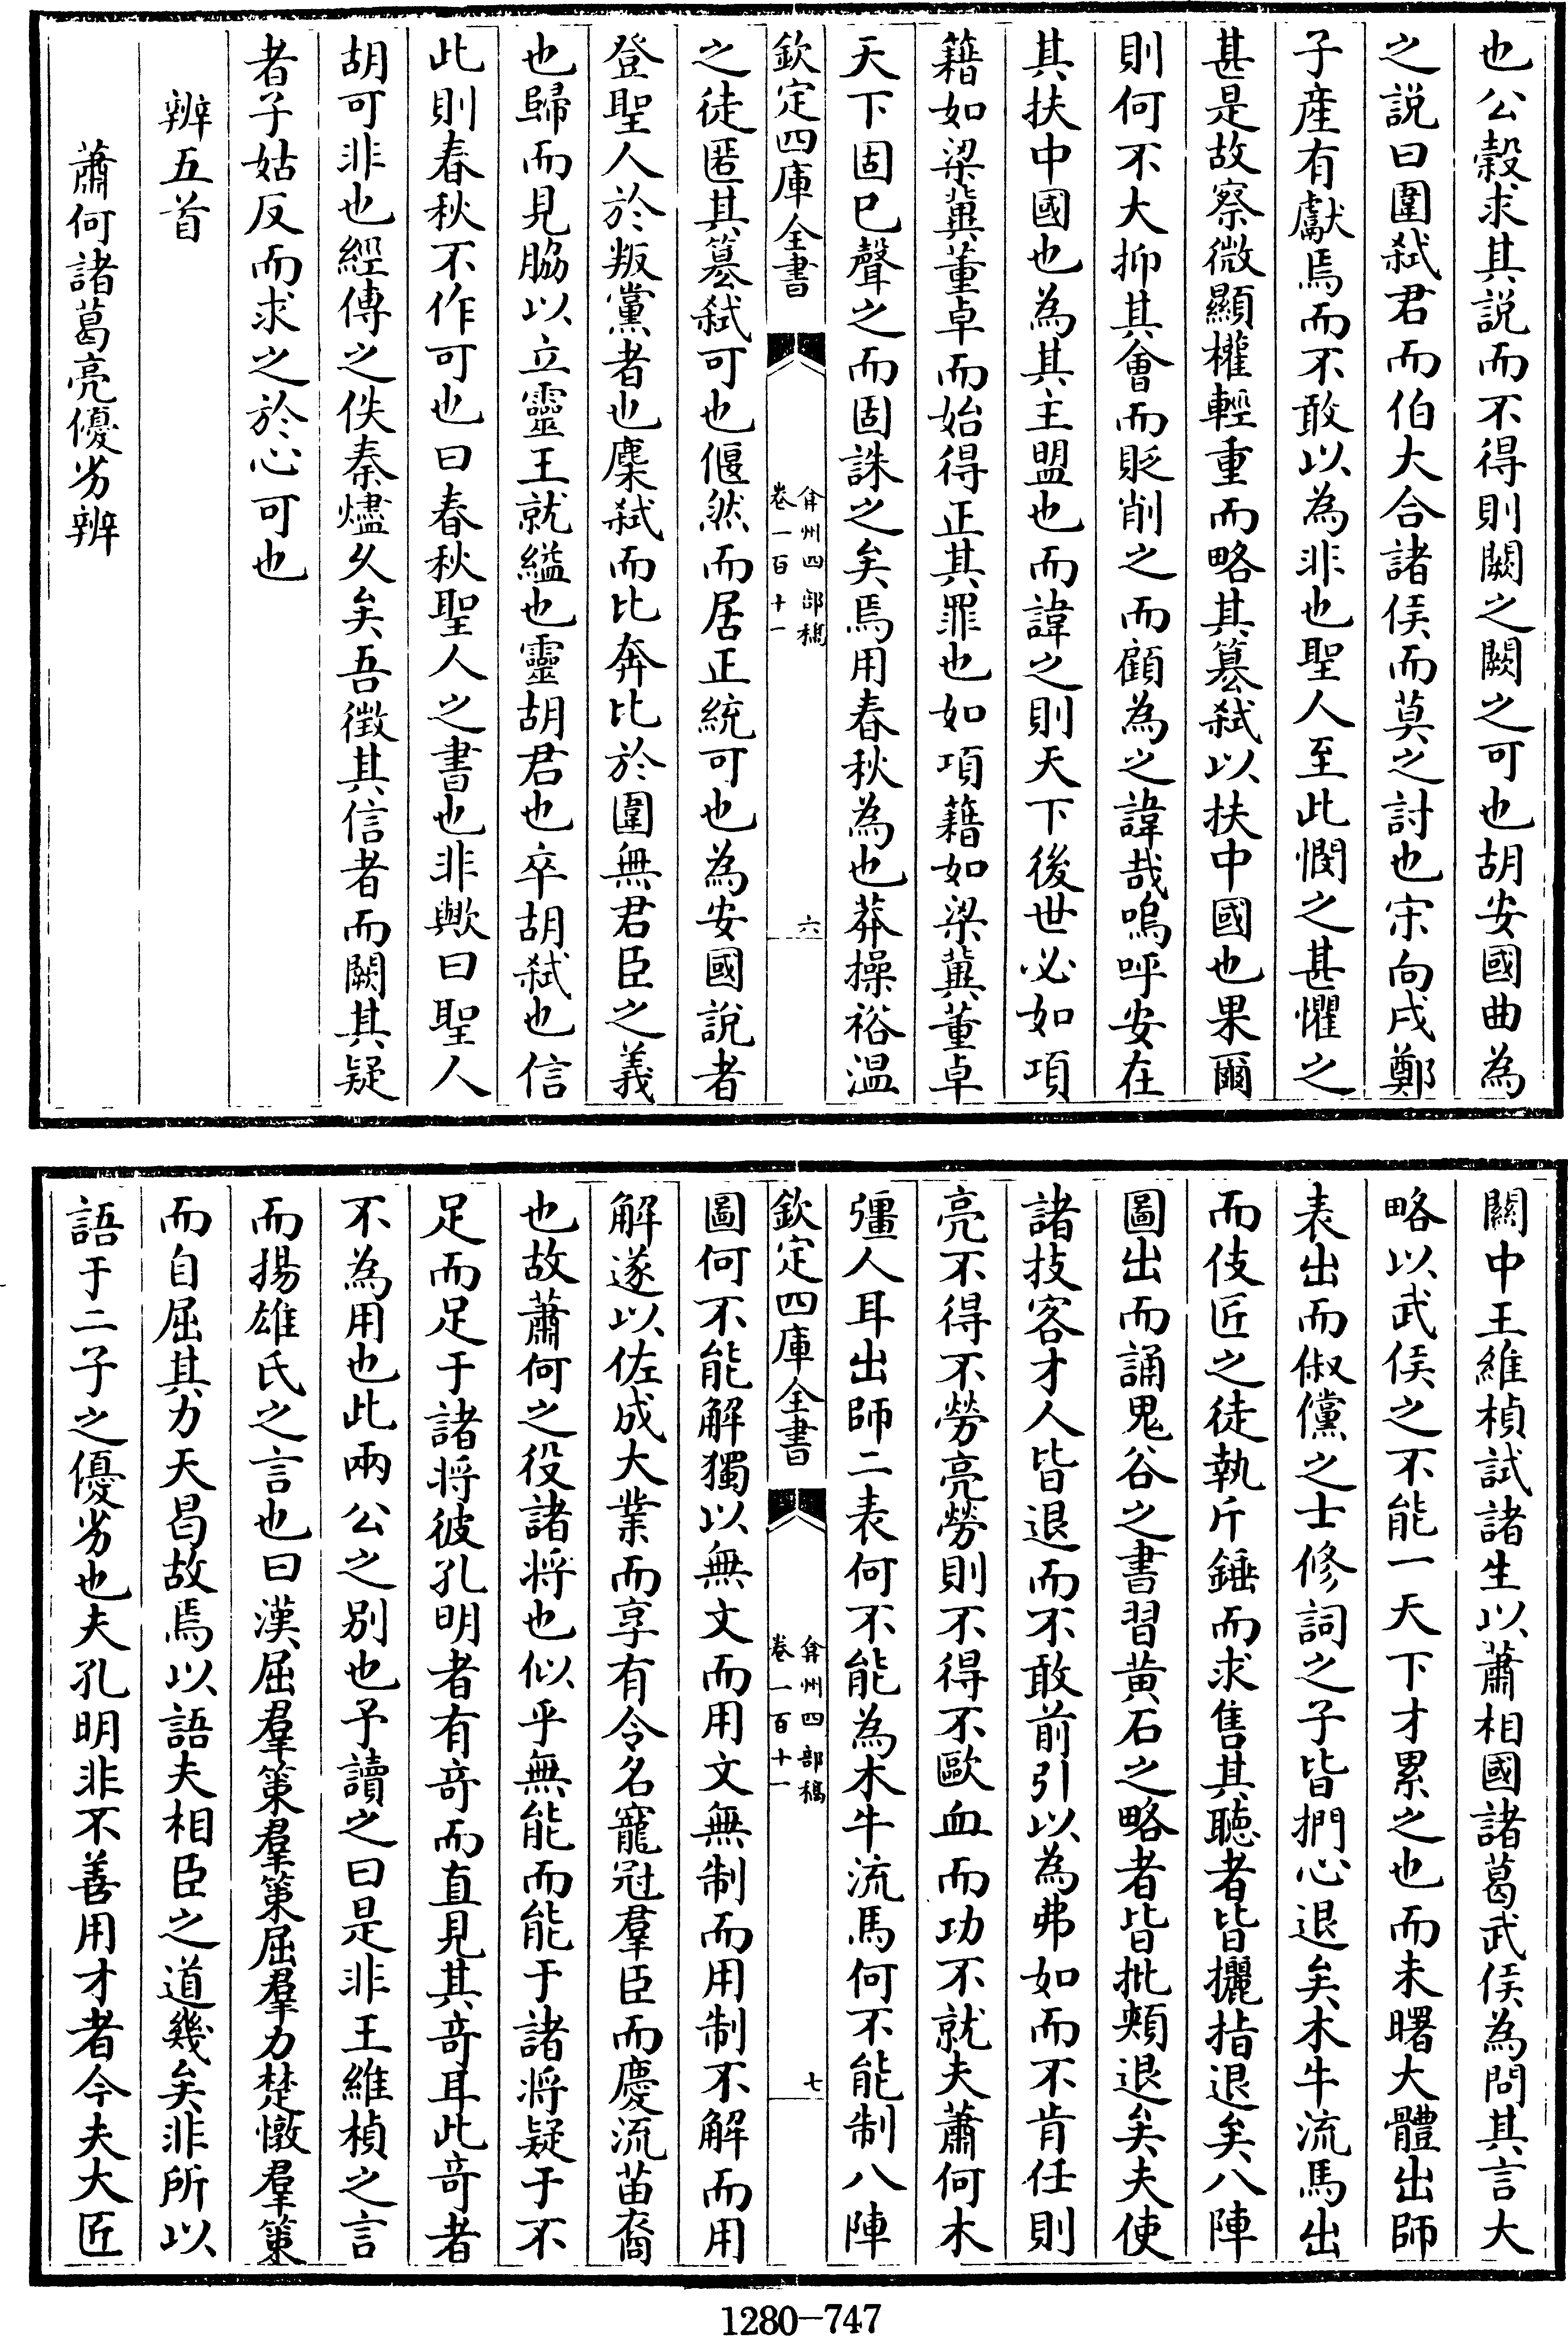 也公穀求其説而不得則闕之闕之可也胡安國曲為
之説曰圍弑君而伯大合諸侯而莫之討也宋向戌鄭
子産有獻焉而不敢以為非也聖人至此憫之甚懼之
甚是故察微顯權輕重而略其簒弑以扶中國也果爾
則何不大抑其㑹而貶削之而顧為之諱哉嗚呼安在
其扶中國也為其主盟也而諱之則天下後世必如項
籍如梁冀董卓而始得正其罪也如項籍如梁冀董卓
天下固已聲之而固誅之矣焉用春秋為也莽操裕温
欽定四庫全書 弇州四部稿 卷一百十一 六
之徒匿其簒弑可也偃然而居正統可也為安國説者
登聖人於叛黨者也麇弑而比奔比於圍無君臣之義
也歸而見脇以立靈王就縊也靈胡君也卒胡弑也信
此則春秋不作可也曰春秋聖人之書也非歟曰聖人
胡可非也經傳之佚秦燼乆矣吾徴其信者而闕其疑
者子姑反而求之於心可也
辨五首
蕭何諸葛亮優劣辨
關中王維楨試諸生以蕭相國諸葛武侯為問其言大
略以武侯之不能一天下才累之也而未曙大體出師
表出而俶儻之士修詞之子皆捫心退矣木牛流馬出
而伎匠之徒執斤錘而求售其聽者皆攦指退矣八陣
圖出而誦鬼谷之書習黄石之略者皆批頰退矣夫使
諸技客才人皆退而不敢前引以為弗如而不肯任則
亮不得不勞亮勞則不得不歐血而功不就夫蕭何木
彊人耳出師二表何不能為木牛流馬何不能制八陣
欽定四庫全書 弇州四部稿 卷一百十一 七
圖何不能解獨以無文而用文無制而用制不解而用
解遂以佐成大業而享有令名寵冠羣臣而慶流苗裔
也故蕭何之役諸將也似乎無能而能于諸將疑于不
足而足于諸將彼孔明者有竒而直見其竒耳此竒者
不為用也此兩公之別也予讀之曰是非王維楨之言
而揚雄氏之言也曰漢屈羣策羣策屈羣力楚憞羣策
而自屈其力天曷故焉以語夫相臣之道幾矣非所以
語于二子之優劣也夫孔明非不善用才者今夫大匠
1280—747